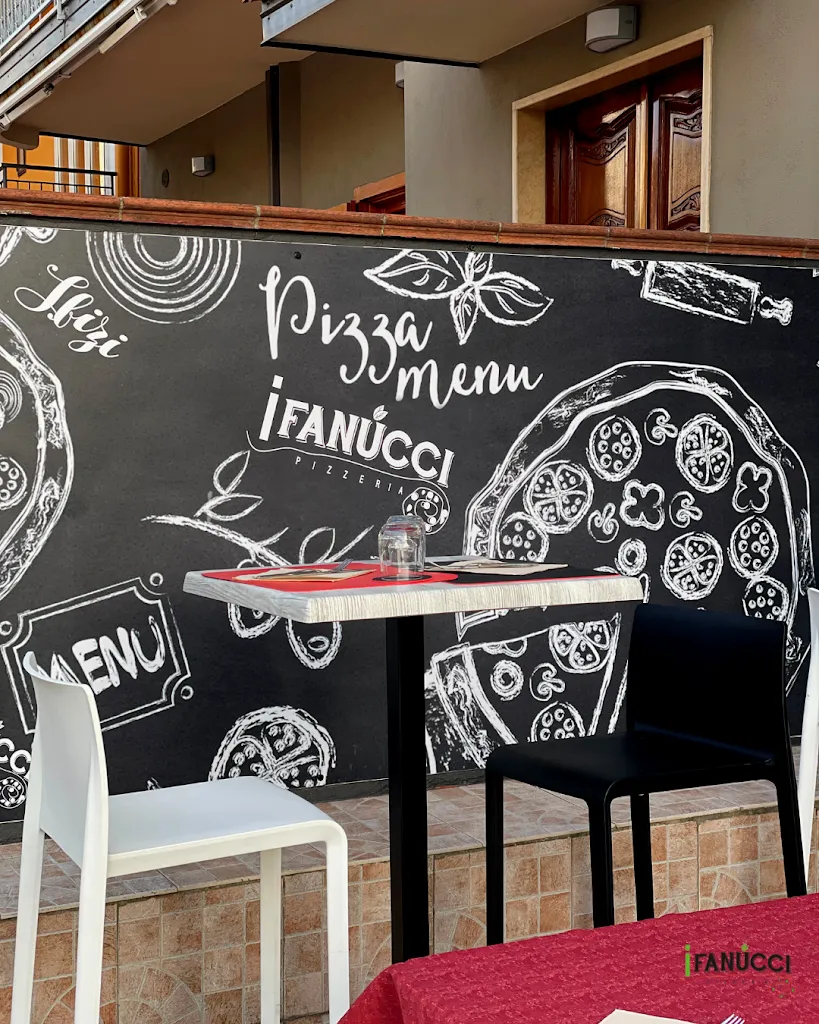 Sfizi
Pizza
menu
iFANUCCI
PIZZERIA
MENU
CCI
iFANUCCI